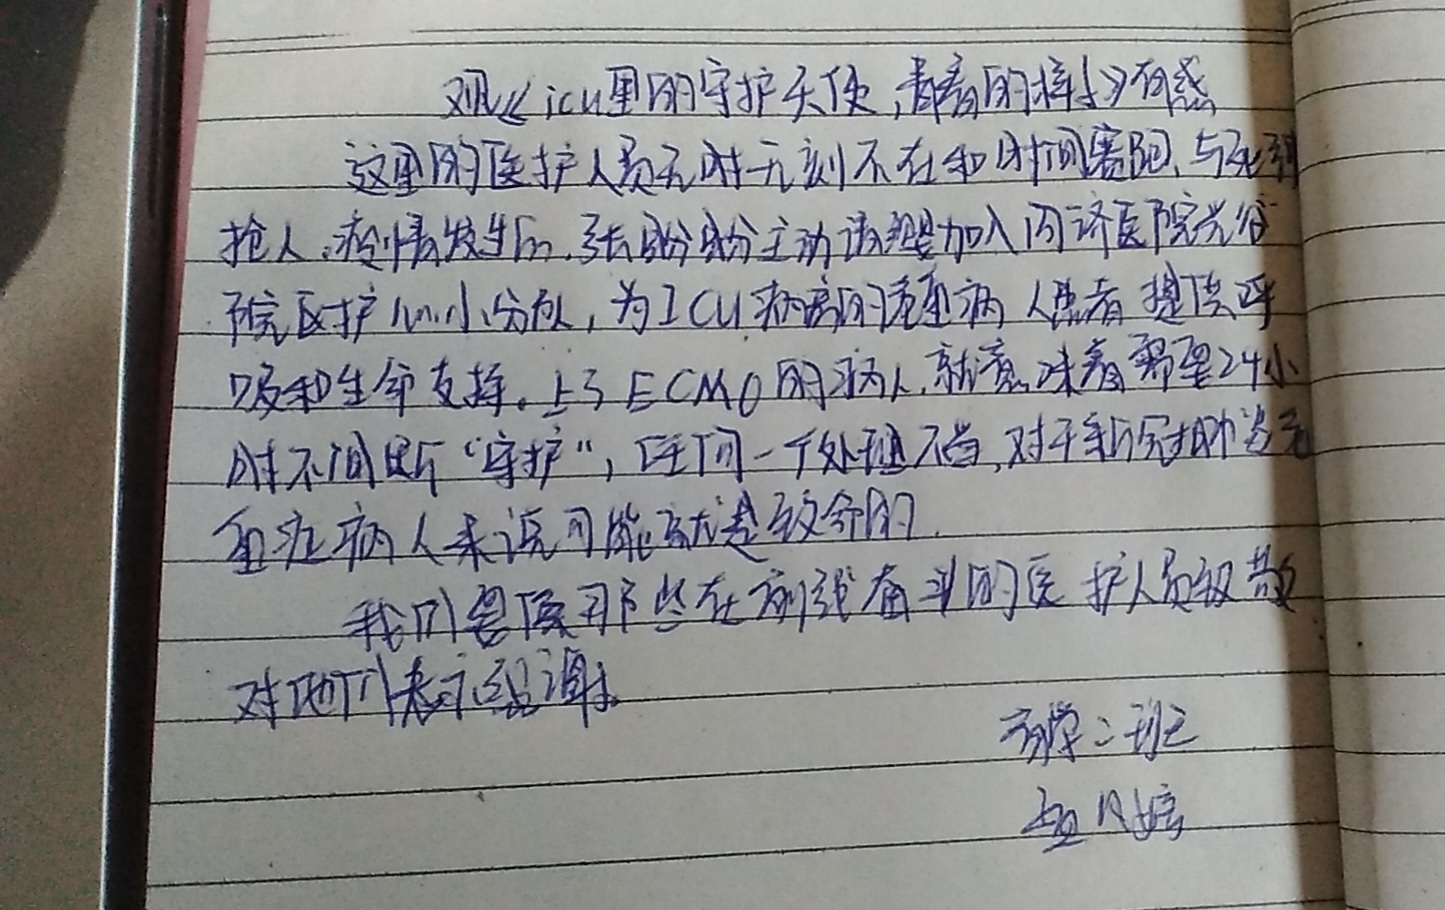 观《icu里的守护天使,青春的样子》有感
这里的医护人员无时无刻不在和时间赛跑、与死神
抢人,疫情发生后,张盼盼主动请缨加入同济医院光谷
院区护心小分队,为ICU病房的危重病人患者提供呼
吸和生命支持。上了ECMO的病人,就意味着需要24小
时不间断“守护”,任何一个处理不当,对于新冠肺炎危
重症病人来说可能就是致命的.
我们要像那些在前线奋斗的医护人员致敬
对他们表示感谢
药学二班